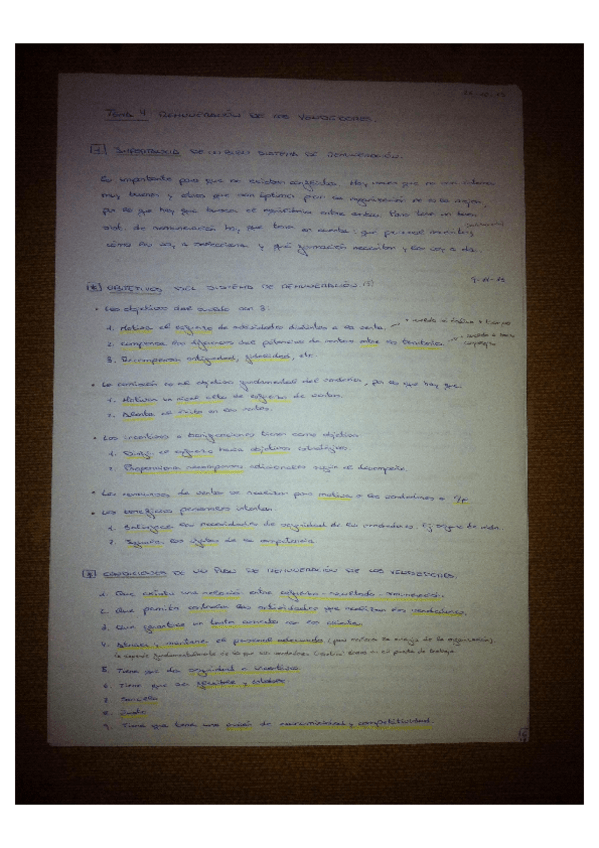 Tema 4 REMUNERACIÓN DE LOS VENDEDORES.
1 IMPORTANCIA DE UN BUEN SISTEMA DE REMUNERACIÓN.
Es importante para que no existan conflictos. Hay veces que no son
muy buenos y otras que son óptimos para la organización no es la mejor,
por lo que hay que buscar el equilibrio entre ambos. Para tener un buen
sist. de remuneración hay que tener en cuenta: qué personal necesitas,
cómo los vas a seleccionar y qué formación necesitan y les vas a dar.
2 OBJETIVOS DEL SISTEMA DE REMUNERACIÓN.
• Los objetivos del sueldo son 3:
1. Motivar el esfuerzo de actividades distintas a la venta.
2. Compensar las diferencias del potencial de ventas entre los territorios.
3. Recompensar antigüedad, fidelidad, etc.
• La comisión es el objetivo fundamental del vendedor, por lo que hay que:
1. Motivar un nivel alto de esfuerzo de ventas.
2. Alentar el éxito en las ventas.
• Los incentivos o bonificaciones tienen como objetivo:
1. Dirigir el esfuerzo hacia objetivos estratégicos.
2. Proporcionar recompensas adicionales según el desempeño.
• Los concursos de ventas se realizan para motivar a los vendedores a c/p
• Los beneficios personales intentan:
1. Satisfacer las necesidades de seguridad de los vendedores. Ej seguro de vida.
2. Igualar las ofertas de la competencia.
3 CONDICIONES DE UN PLAN DE REMUNERACIÓN DE LOS VENDEDORES.
1. Que exista una relación entre esfuerzo - resultado - remuneración.
2. Que permita controlar las actividades que realizan los vendedores.
3. Que garantice un trato correcto con los clientes.
4. Atraer y mantener el personal adecuado
5. Tiene que dar seguridad e incentivos
6. Tiene que ser flexible y estable.
7. Sencillo
8. Justo
9. Tiene que tener una visión de economicidad y competitividad.